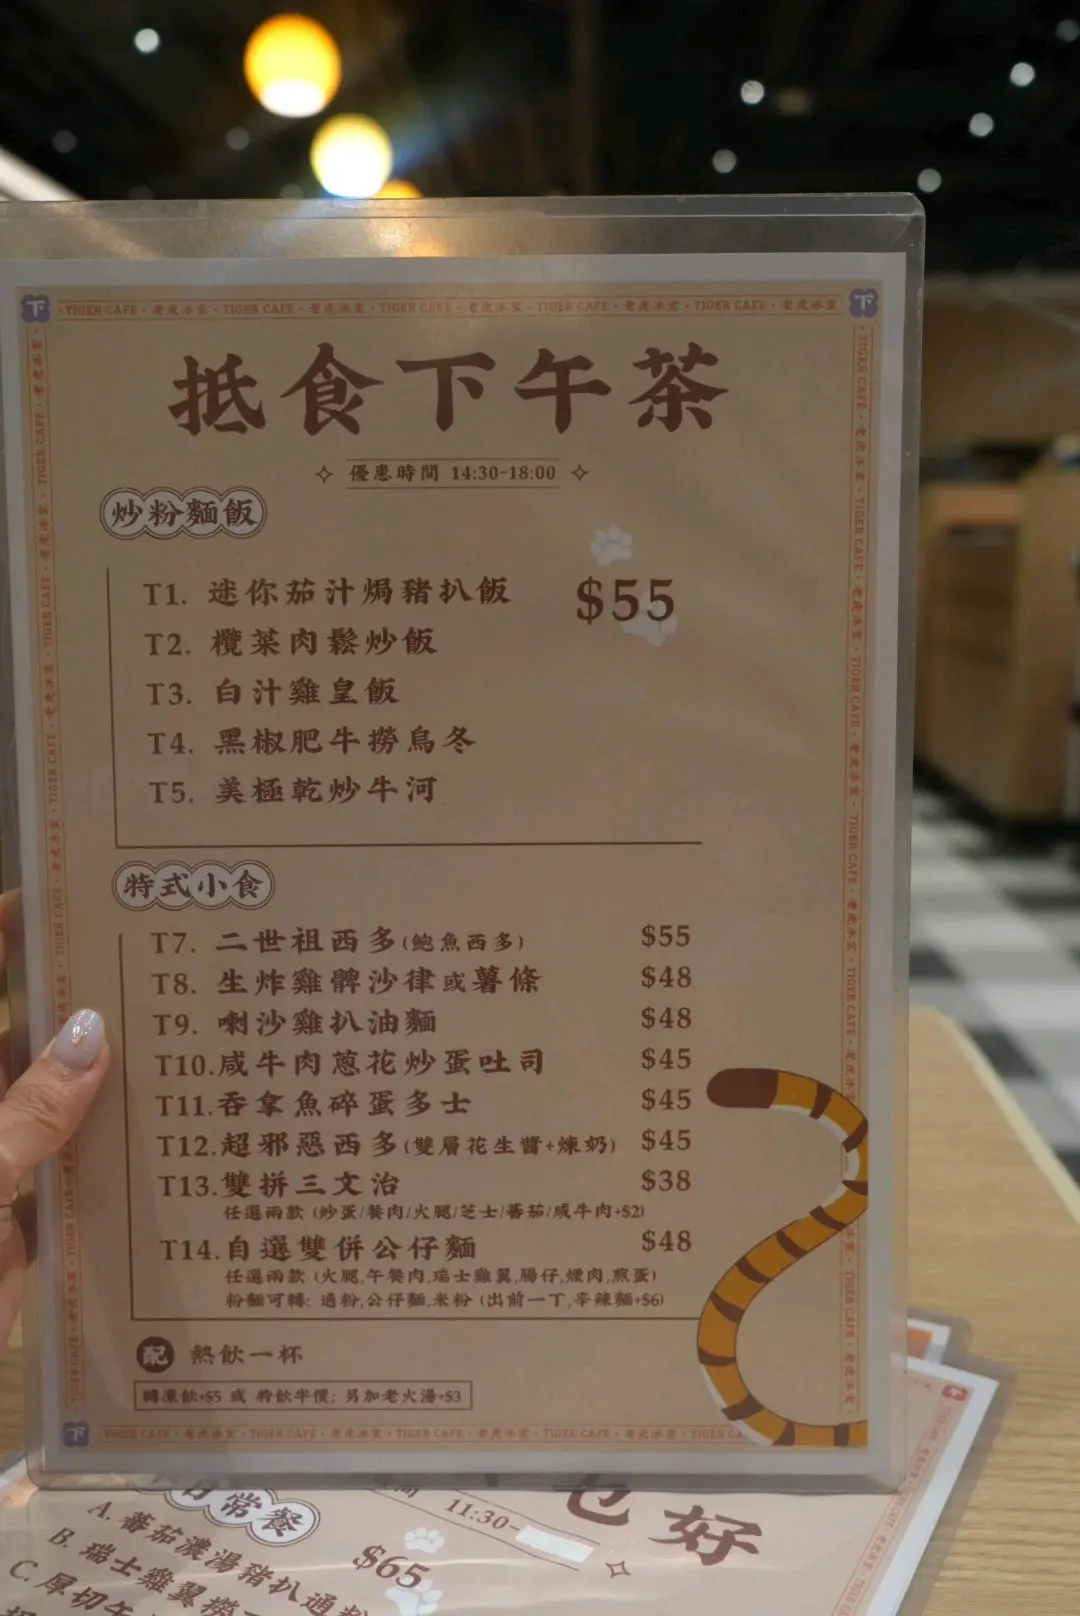 下
TIGER CAFE · 老虎冰室 · TIGER CAFE · 老虎冰室 · TIGER CAFE · 老虎冰室 · TIGER CAFE · 老虎冰室
下
抵食下午茶
優惠時間 14:30-18:00
炒粉麵飯
T1. 迷你茄汁焗豬扒飯 $55
T2. 欖菜肉鬆炒飯
T3. 白汁雞皇飯
T4. 黑椒肥牛撈烏冬
T5. 美極乾炒牛河
特式小食
T7. 二世祖西多(鮑魚西多) $55
T8. 生炸雞髀沙律或薯條 $48
T9. 喇沙雞扒油麵 $48
T10.咸牛肉蔥花炒蛋吐司 $45
T11.吞拿魚碎蛋多士 $45
T12.超邪惡西多(雙層花生醬+煉奶) $45
T13.雙拼三文治 $38
任選兩款 (炒蛋/餐肉/火腿/芝士/蕃茄/咸牛肉+$2)
T14.自選雙併公仔麵 $48
任選兩款 (火腿,午餐肉,瑞士雞翼,腸仔,煙肉,煎蛋)
粉麵可轉: 通粉,公仔麵,米粉 (出前一丁,辛辣麵+$6)
配 熱飲一杯
轉凍飲+$5 或 特飲半價; 另加老火湯+$3
下
TIGER CAFE · 老虎冰室 · TIGER CAFE · 老虎冰室 · TIGER CAFE · 老虎冰室 · TIGER CAFE · 老虎冰室
好
11:30-
常餐
$65
A. 蕃茄濃湯豬扒通粉
B. 瑞士雞翼撈
C. 厚切牛